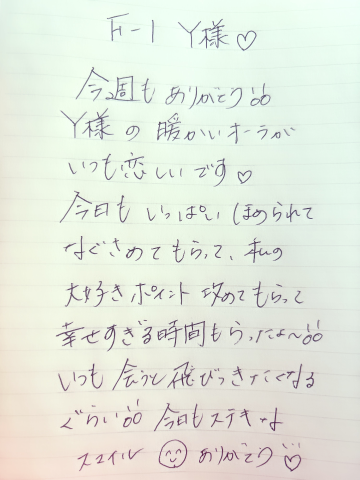 F-1 Y様♡
今週もありがとう
Y様の暖かいオーラが
いつも恋しいです♡
今日もいっぱいほめられて
なぐさめてもらって、私の
大好きポイント攻めてもらって
幸せすぎる時間もらったよ〜
いつも会うと飛びつきたくなる
ぐらい 今日もステキな
スマイル ありがとう♡